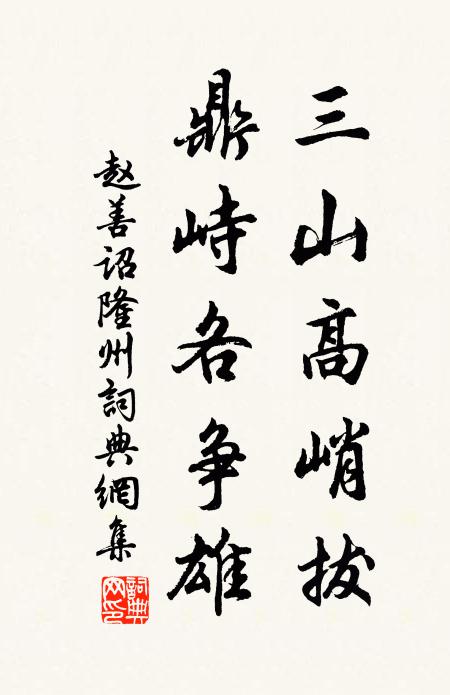 三山高峭拔
鼎峙各争雄
赵善诏隆州詞典網集
詞典网印